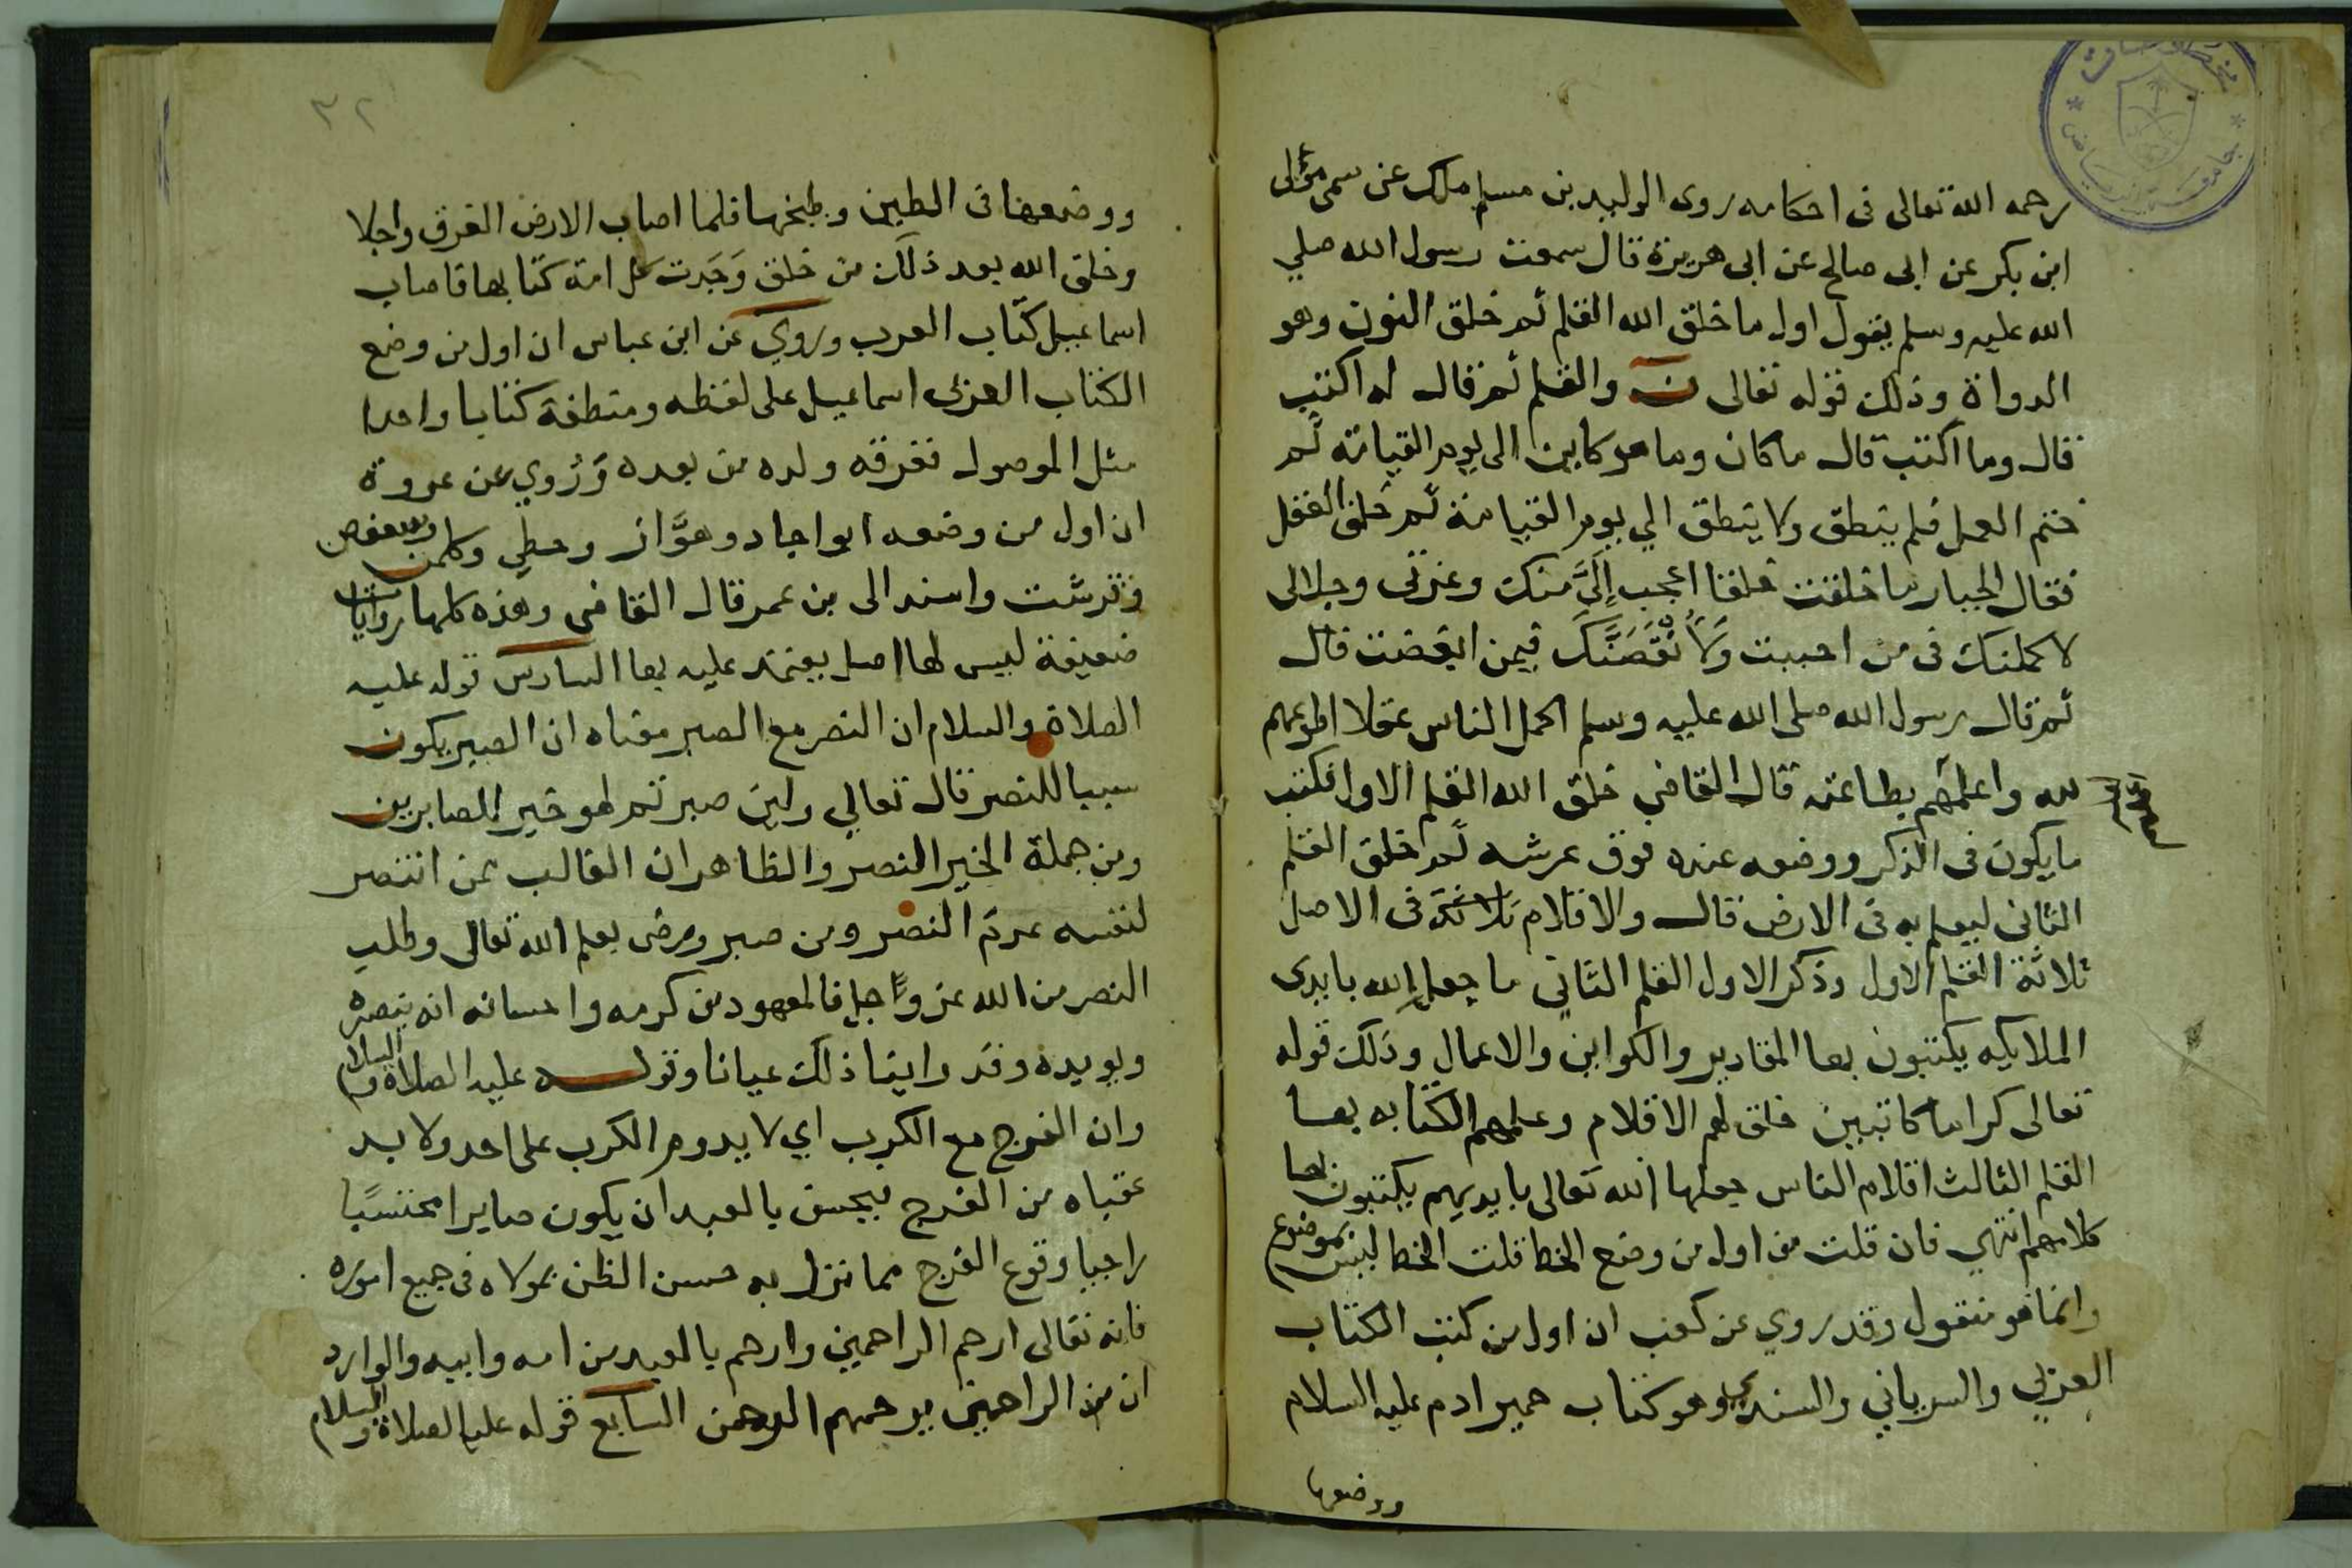 رحمه الله تعالى فى احكامه روى الوليد بن مسلم ملك عن سمى مولى
ابن بكر عن ابى صالح عن ابى هريرة قال سمعت رسول الله صلي
الله عليه وسلم يقول اول ما خلق الله القلم ثم خلق النون وهو
الدواة وذلك قوله تعالى ن والقلم ثم قال له اكتب
قال وما اكتب قال ما كان وما هو كاين الى يوم القيامة ثم
ختم العمل فلم ينطق ولا ينطق الي يوم القيامة ثم خلق العقل
فقال الجبار ما خلقت خلقا اعجب إليَّ منك وعزتى وجلالى
لاكملنك فى من احببت ولأنقصَنَّكَ فيمن ابغضت قال
ثم قال رسول الله صلى الله عليه وسلم اكمل الناس عقلا اطوعهم
لله واعلمهم بطاعته قال القاضي خلق الله القلم الاول فكتب
ما يكون فى الذكر ووضعه عنده فوق عرشه ثم خلق القلم
الثانى ليعلم به فى الارض قال والاقلام ثلاثة فى الاصل
ثلاثة القلم الاول وذكر الاول القلم الثاني ما جعل الله بايدى
الملايكه يكتبون بها المقادير والكواين والاعمال وذلك قوله
تعالى كراما كاتبين خلق لهم الاقلام وعلمهم الكتابه بها
القلم الثالث اقلام الناس جعلها الله تعالى بايديهم يكتبون بها
كلامهم انتهي فان قلت من اول من وضع الخط قلت الخط ليس بموضوع
وانما هو منقول وقد روي عن كعب ان اول من كتب الكتاب
العربي والسرياني والسند وهو كتاب حمير ادم عليه السلام
ووضعها
٣٢
ووضعها فى الطين وطبخها فلما اصاب الارض الغرق وانجلا
وخلق الله بعد ذلك من خلق وَجَدت كل امة كتابها فاصاب
اسماعيل كتاب العرب وروي عن ابن عباس ان اول من وضع
الكتاب العربى اسماعيل على لفظه ومنطقة كتابا واحدا
مثل الموصول ففرقه ولده من بعده وَرُوي عن عروة
ان اول من وضعه ابواجاد وهوَّاز وحطي وكلمن وسعفص
وقرشت واسند الى بن عمر قال القاضى وهذه كلها روايات
ضعيفة ليس لها اصل يعتمد عليه بها السادس قوله عليه
الصلاة والسلام ان النصر مع الصبر معناه ان الصبر يكون
سببا للنصر قال تعالي ولين صبرتم لهو خير للصابرين
ومن جملة الخير النصر والظاهر ان الغالب بمن انتصر
لنفسه عدم النصر ومن صبر ورضى بعلم الله تعالى وطلب
النصر من الله عز وجل فالمعهود من كرمه واحسانه انه ينصره
ويويده وقد راينا ذلك عيانا وقوله عليه الصلاة والسلام
وان الفرج مع الكرب اي لا يدوم الكرب على احد ولا بد
عقباه من الفرج فيحسن بالعبد ان يكون صابرا محتسبًا
راجيا وقوع الفرج مما نزل به حسن الظن بمولاه فى جميع اموره
فانه تعالى ارحم الراحمين وارحم بالعبد من امه وابيه والوارد
ان من الراحمين يرحمهم الرحمن السابع قوله عليه الصلاة والسلام